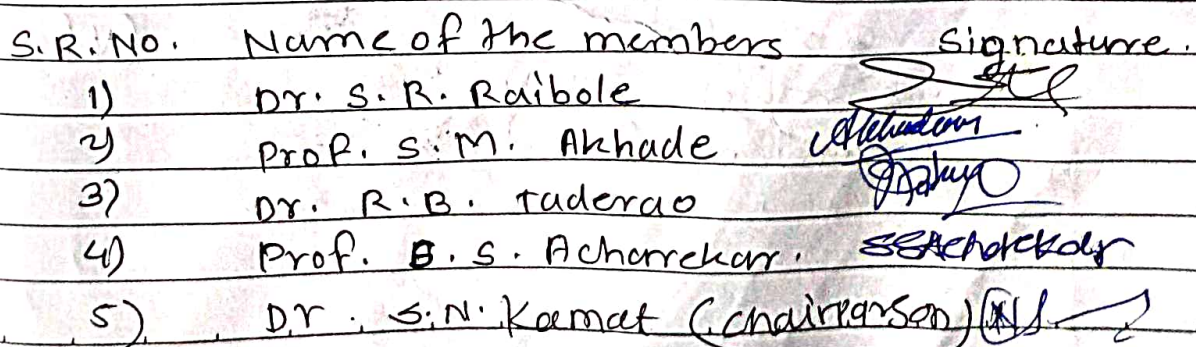 S.R. No. Name of the members Signature.
1) Dr. S. R. Raibole
2) Prof. S. M. Akhade. Akhade
3) Dr. R. B. Taderao
4) Prof. B. S. Acharekar. SSAcharekar
5) Dr. S. N. Kamat (Chairparson)